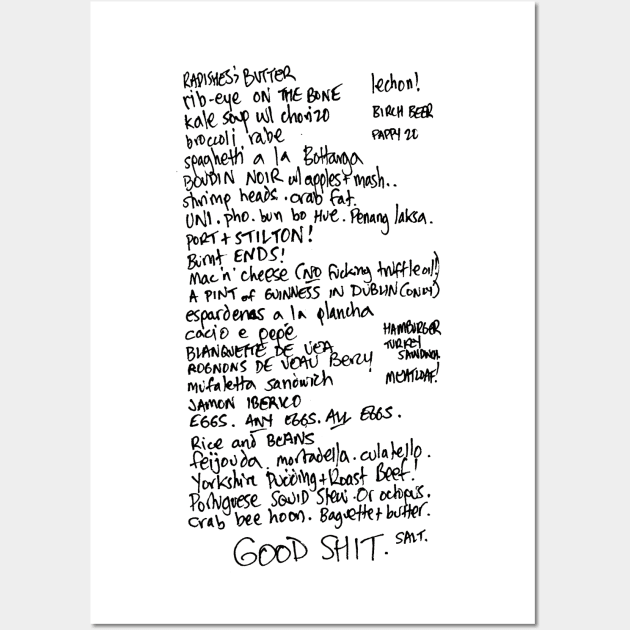 RADISHES & BUTTER
rib-eye ON THE BONE
lechon!
kale soup w/ chorizo
BIRCH BEER
broccoli rabe
PAPPY 20
spaghetti a la Bottarga
BOUDIN NOIR w/ apples + mash..
shrimp heads. crab fat.
UNI. pho. bun bo Hue. Penang laksa.
PORT + STILTON!
Burnt ENDS!
Mac 'n' cheese (NO fucking truffle oil!)
A PINT of GUINNESS IN DUBLIN (ONLY)
espardenas a la plancha
cacio e pepe
HAMBURGER
BLANQUETTE DE VEA
TURKEY SANDWICH
ROGNONS DE VEAU Bercy
mufaletta sandwich
MEATLOAF!
JAMON IBERICO
EGGS. ANY EGGS. ALL EGGS.
Rice and BEANS
feijouda. mortadella. culatello.
Yorkshire Pudding + Roast Beef!
Portuguese SQUID Stew. Or octopus.
crab bee hoon. Baguette + butter.
GOOD SHIT.
SALT.